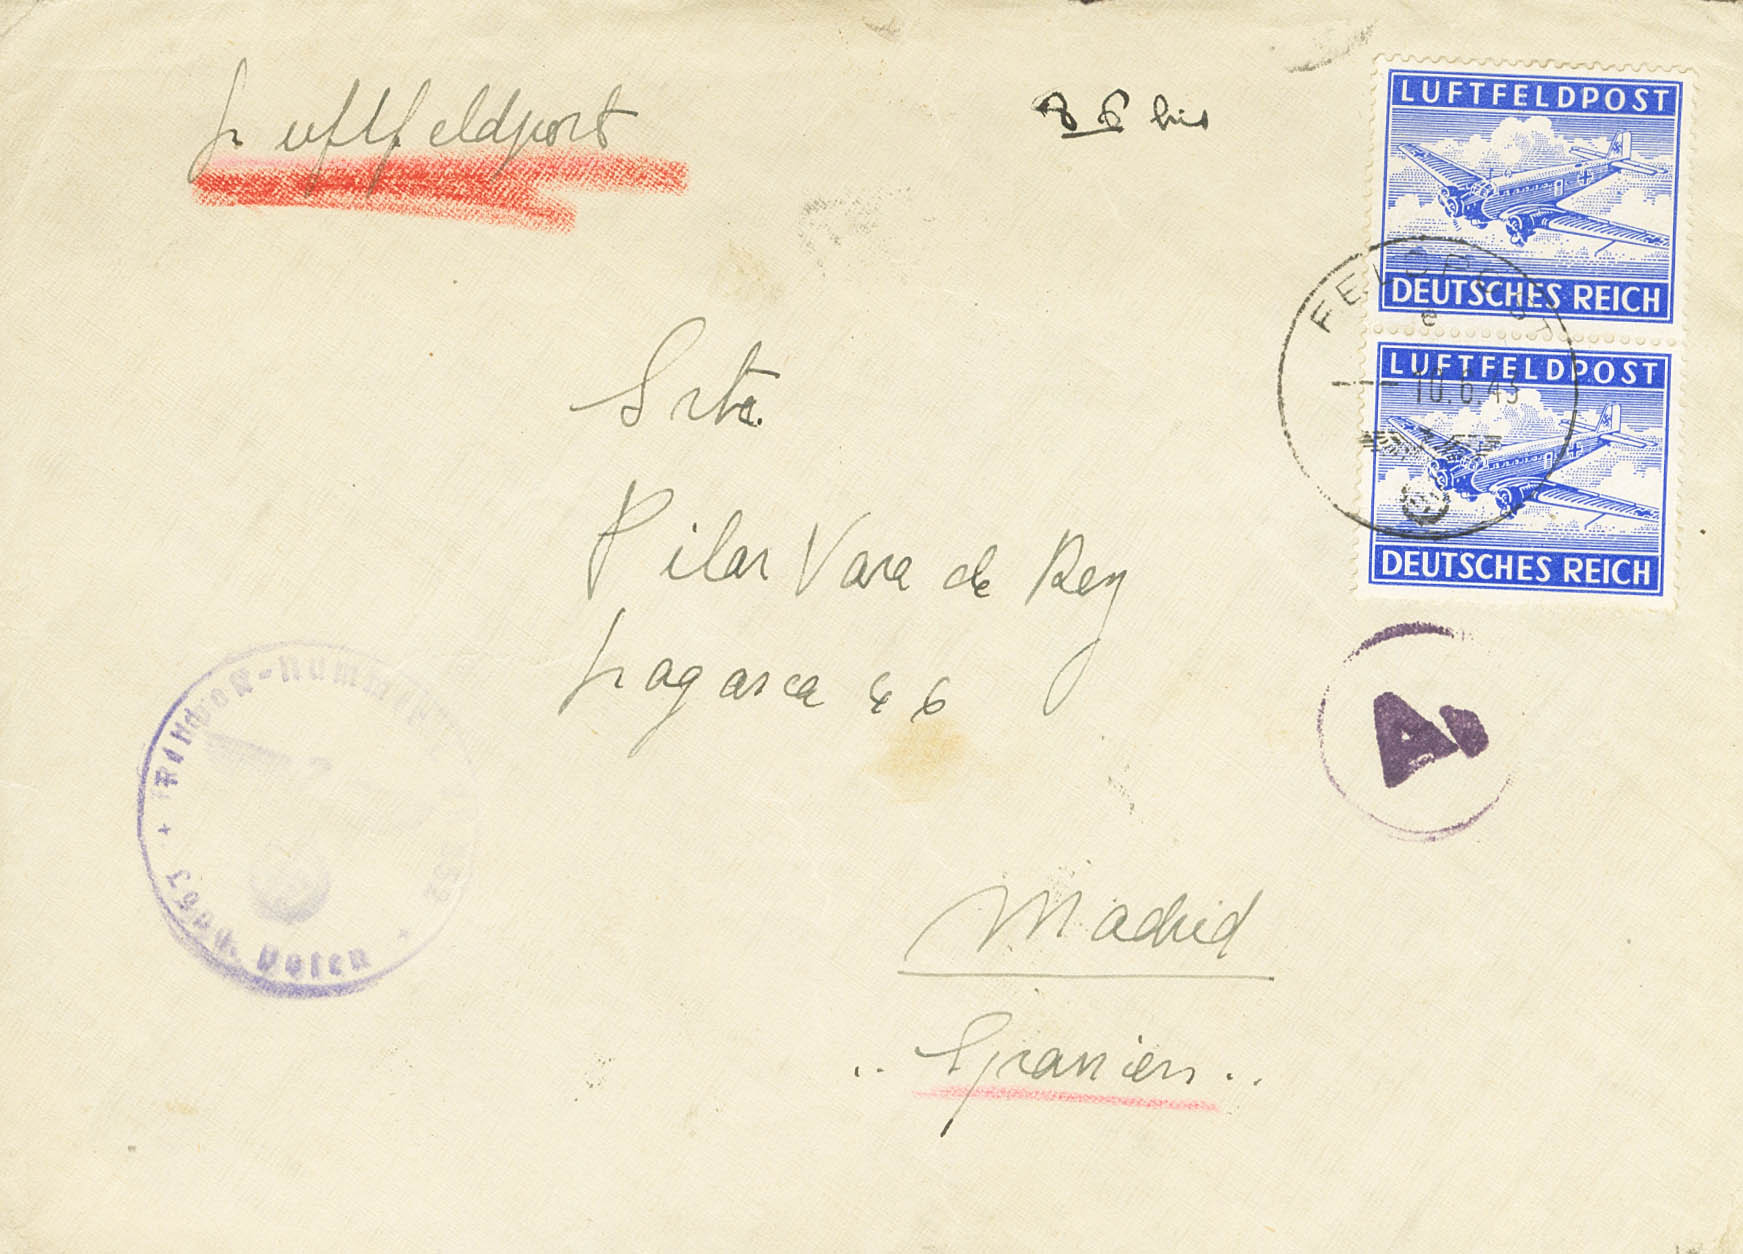 Luftfeldpost
86 bis
LUFTFELDPOST
DEUTSCHES REICH
FELDPOST
e
LUFTFELDPOST
10.6.43
DEUTSCHES REICH
Srta.
Pilar Vara de Rey
Lagasca 46
A
Feldpost-Nummer
Madrid
Spanien